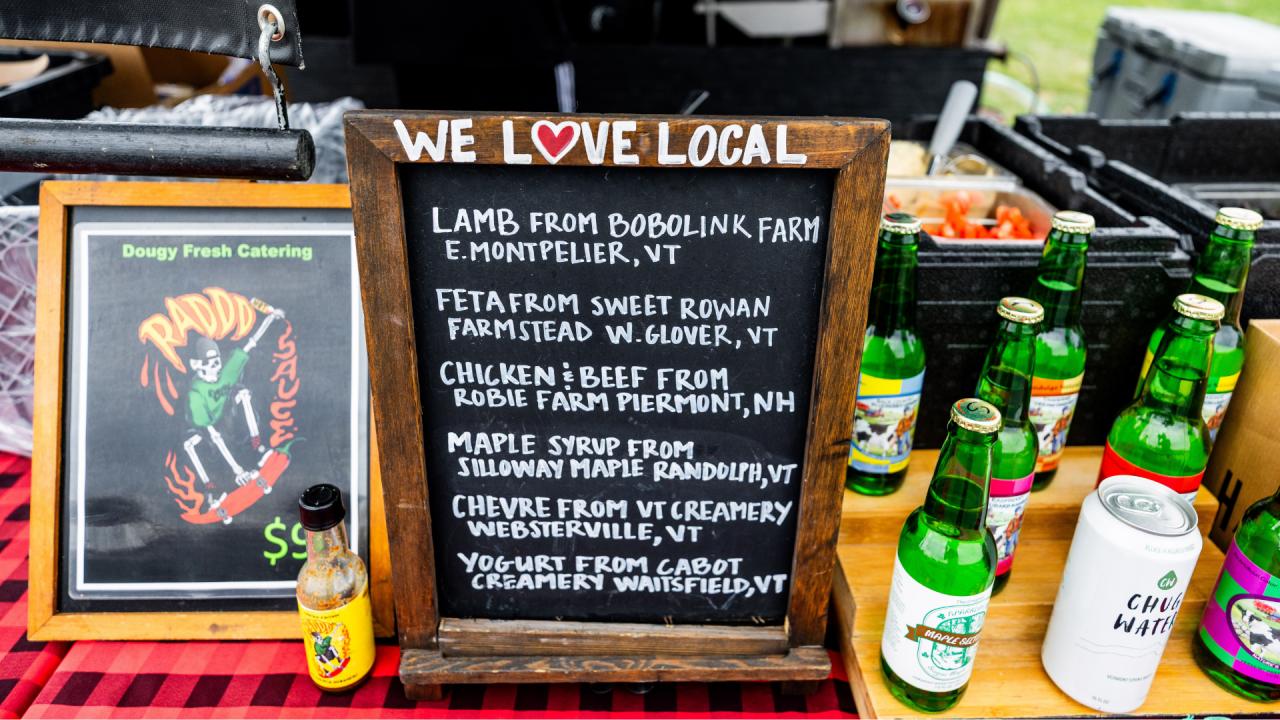 WE LOVE LOCAL
LAMB FROM BOBOLINK FARM
E. MONTPELIER, VT
FETA FROM SWEET ROWAN
FARMSTEAD W. GLOVER, VT
CHICKEN & BEEF FROM
ROBIE FARM PIERMONT, NH
MAPLE SYRUP FROM
SILLOWAY MAPLE RANDOLPH, VT
CHEVRE FROM VT CREAMERY
WEBSTERVILLE, VT
YOGURT FROM CABOT
CREAMERY WAITSFIELD, VT
Dougy Fresh Catering
RADDD
SAUCE
$9
MAPLE
CW
CHUG
WATER